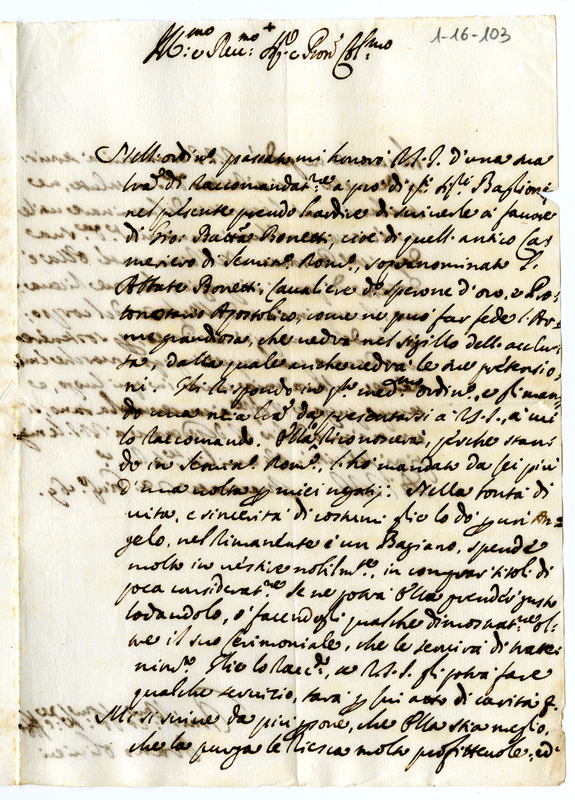 1-16-103
Ill.mo e Rev.mo Sig.re e Pron Col.mo
Nell ordin.o passato mi honorò V.S.I. d'una sua
lra di raccomandat.ne a pro di q.ti Sig.ri Baglioni,
nel presente prendo l'ardire di scriverle a favore
di Gio: Batta Bonetti, cioè di quell antico Ca=
meriero di Semin.o Rom.o, sopranominato l'
Abbate Bonetti, Cavaliere d.o sperone d'oro, e Pro
tonotario Apostolico, come ne può far fede l'Ar=
me grandiosa, che vedrà nel sigillo dell acclu=
sa, dalla quale anche vedrà le sue pretensio
ni. Gli rispondo in q.to med.mo ordin.o, e gli man
do una mia lra da presentarsi a V.S.I., a cui
lo raccomando. Ella il riconoscerà, perche stan=
do in Semin.o Rom.o, l'hò mandato da lei più
d'una volta p miei negotij. Nella bontà di
vita, e sincerità di costumi glie lo dò p un An=
gelo, nel rimanente è un Bagiano, spende
molto in vestire nobilm.te, in comprar titoli di
poca considerat.ne. Se ne potrà Ella prender gusto
lodandolo, e facendogli qualche dimostrat.ne ol=
tre il suo Cerimoniale, che le servirà di tratte
nim.to. Glie lo racc.do, e se V.S.I. gli potrà fare
qualche servizio, sarà p lui atto di carità &.
Mi si scrive da più psone, che Ella stia meglio,
che la purga le riesca molto profittevole, ed